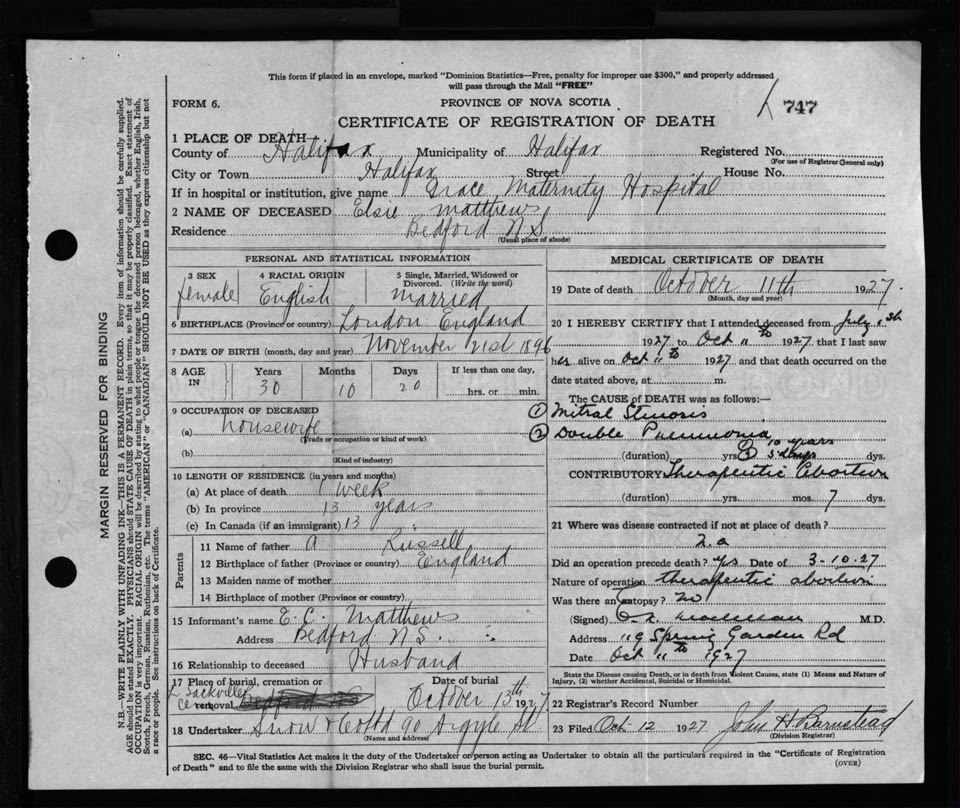 This form if placed in an envelope, marked "Dominion Statistics—Free, penalty for improper use $300," and properly addressed
will pass through the Mail "FREE"
FORM 6.
PROVINCE OF NOVA SCOTIA
747
CERTIFICATE OF REGISTRATION OF DEATH
1 PLACE OF DEATH
County of Halifax Municipality of Halifax Registered No.
(For use of Registrar General only)
City or Town Halifax Street House No.
If in hospital or institution, give name Grace Maternity Hospital
2 NAME OF DECEASED Elsie Matthews
Residence Bedford N.S.
(Usual place of abode)
PERSONAL AND STATISTICAL INFORMATION
3 SEX 4 RACIAL ORIGIN 5 Single, Married, Widowed or
Divorced. (Write the word)
female English Married
6 BIRTHPLACE (Province or country) London England
7 DATE OF BIRTH (month, day and year) November 21st 1896
8 AGE IN Years Months Days If less than one day,
30 10 20 hrs. or min.
9 OCCUPATION OF DECEASED
(a) housewife
(Trade or occupation or kind of work)
(b)
(Kind of industry)
10 LENGTH OF RESIDENCE (in years and months)
(a) At place of death 1 week
(b) In province 13 years
(c) In Canada (if an immigrant) 13 "
Parents
11 Name of father A Russell
12 Birthplace of father (Province or country) England
13 Maiden name of mother
14 Birthplace of mother (Province or country)
15 Informant's name E. C. Matthews
Address Bedford N.S.
16 Relationship to deceased Husband
17 Place of burial, cremation or removal Date of burial
Sackville October 13th 1927
18 Undertaker Snow & Co Ltd 90 Argyle St
(Name and address)
MEDICAL CERTIFICATE OF DEATH
19 Date of death October 11th 1927.
(Month, day and year)
20 I HEREBY CERTIFY that I attended deceased from July
1927 to Oct 11th 1927, that I last saw
her alive on Oct 11th 1927 and that death occurred on the
date stated above, at m.
The CAUSE of DEATH was as follows:—
① Mitral Stenosis
② Double Pneumonia
10 years
(duration) yrs ② 5 days dys.
CONTRIBUTORY Therapeutic Abortion
(duration) yrs. mos. 7 dys.
21 Where was disease contracted if not at place of death?
Did an operation precede death? yes Date of 3-10-27
Nature of operation therapeutic abortion
Was there an autopsy? no
(Signed) M.D.
Address 119 Spring Garden Rd
Date Oct 11th 1927
State the Disease causing Death, or in death from Violent Causes, state (1) Means and Nature of
Injury, (2) whether Accidental, Suicidal or Homicidal.
22 Registrar's Record Number
23 Filed Oct-12 1927 John H Barnstead
(Division Registrar)
SEC. 46—Vital Statistics Act makes it the duty of the Undertaker or person acting as Undertaker to obtain all the particulars required in the "Certificate of Registration
of Death" and to file the same with the Division Registrar who shall issue the burial permit.
(OVER)
MARGIN RESERVED FOR BINDING
N.B.—WRITE PLAINLY WITH UNFADING INK—THIS IS A PERMANENT RECORD. Every item of information should be carefully supplied.
AGE should be stated EXACTLY. PHYSICIANS should STATE CAUSE OF DEATH in plain terms, so that it may be properly classified. Exact statement of
OCCUPATION is very important. RACIAL ORIGIN will be described by stating to what people or tongue the deceased person belonged, whether English, Irish,
Scotch, French, German, Russian, Ruthenian, etc. The terms "AMERICAN" or "CANADIAN" SHOULD NOT BE USED as they express citizenship but not
a race or people. See instructions on back of Certificate.